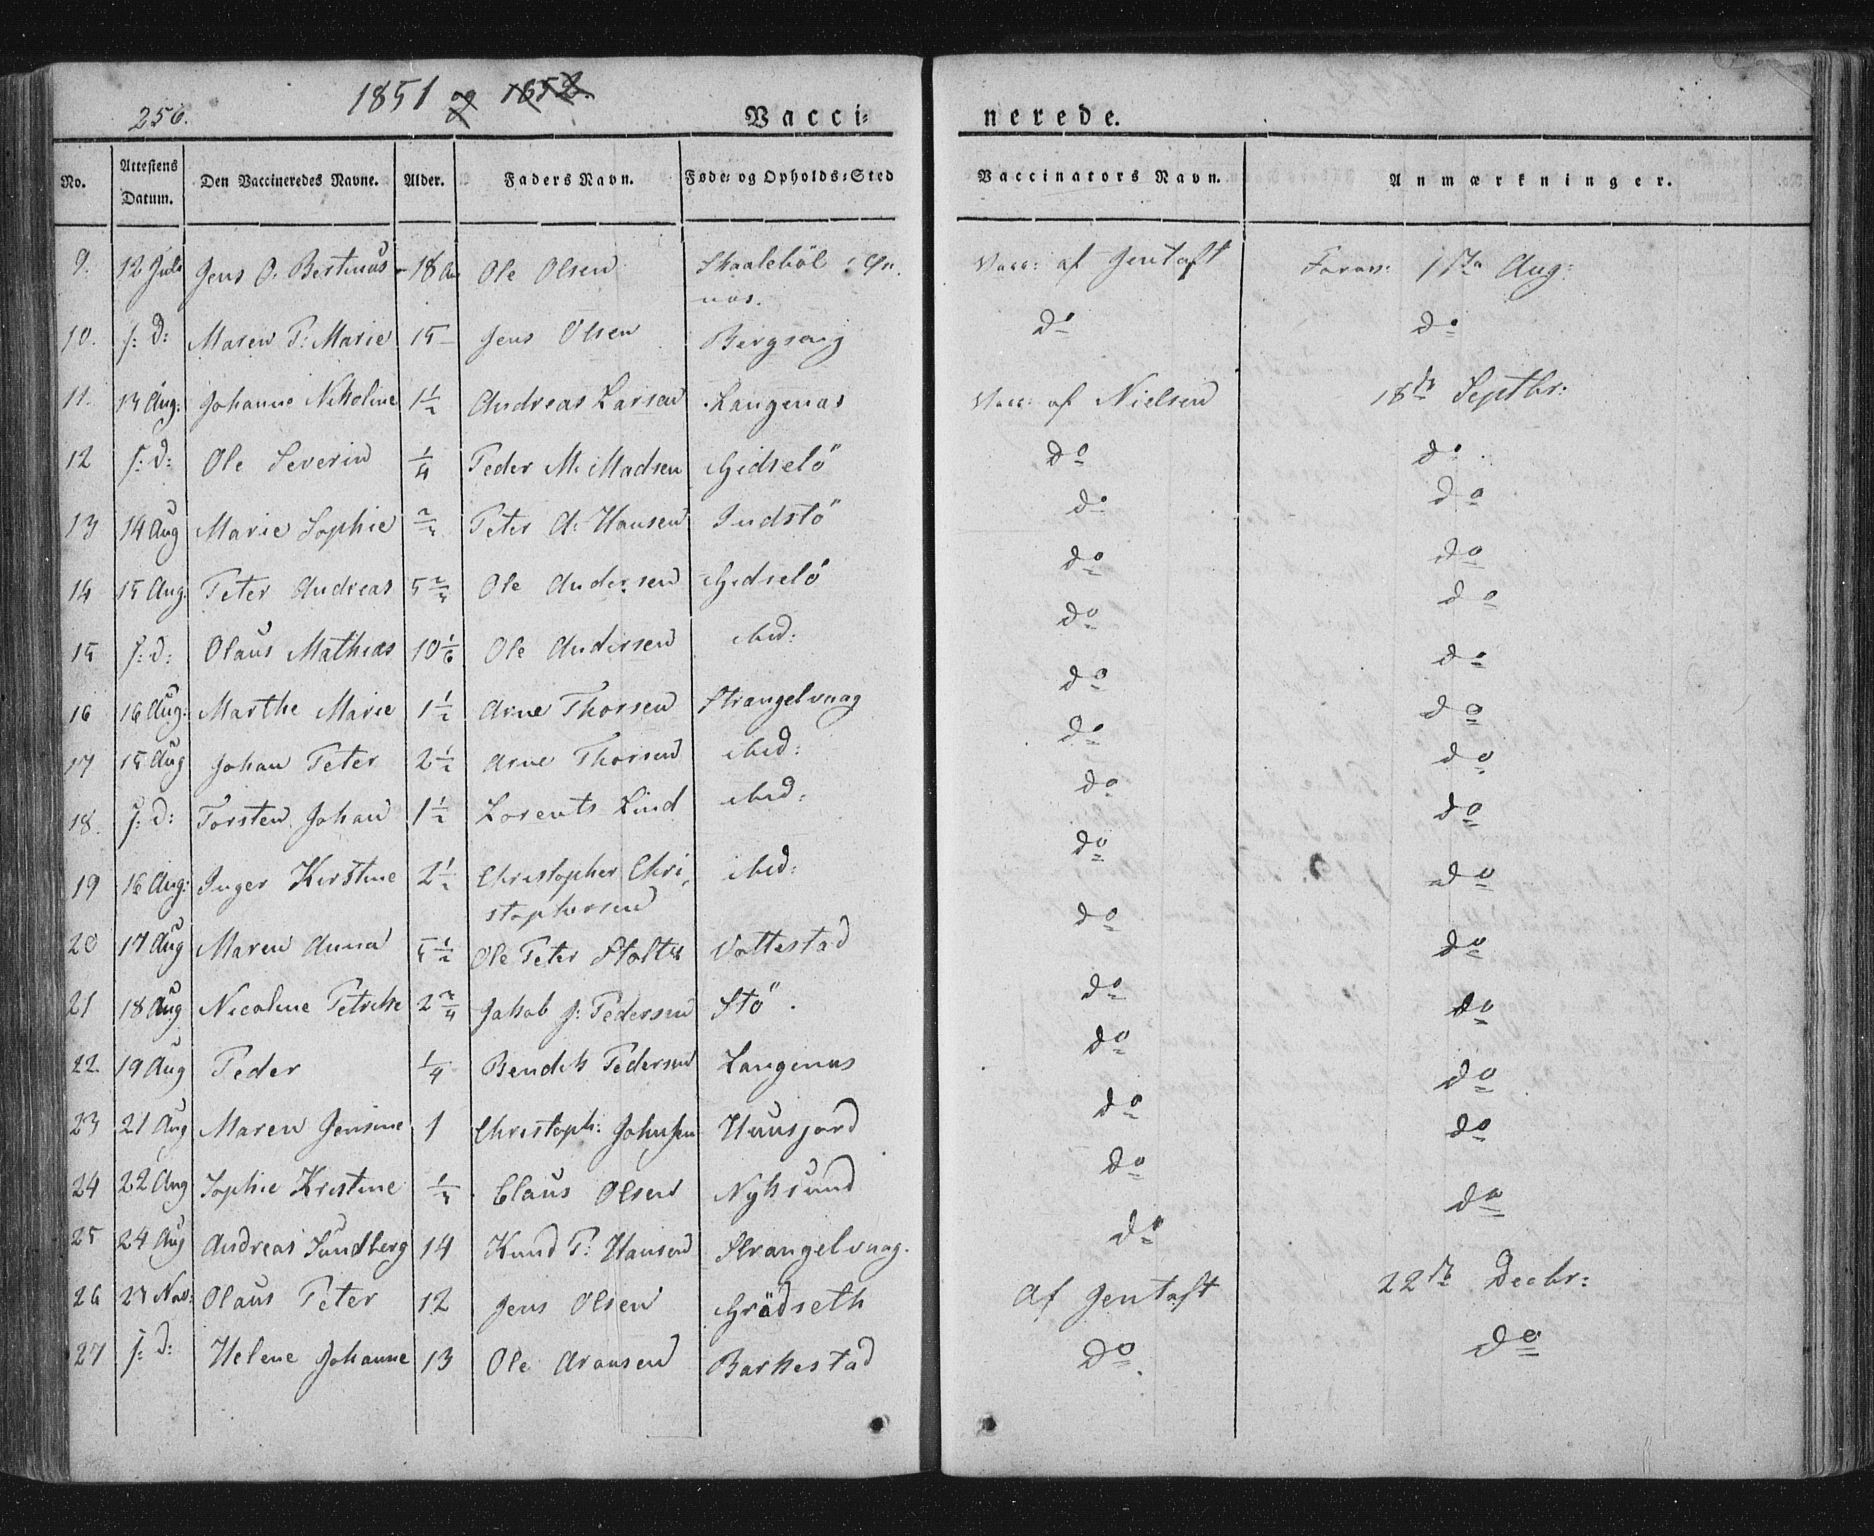 256.
1851 og 1852.
Vacci= nerede.
No. Attestens Datum. Den Vaccineredes Navne. Alder. Faders Navn. Føde= og Opholds=Sted Vaccinators Navn. Anmærkninger.
9. 12 Juli Jens O. Bertinus 18 Ole Olsen Skaalebøl Vacc: af Gentoft 1ste Aug:
10. s: D: Maren P: Marie 15 Jens Olsen Bergseng do do
11. 13 Aug: Johanne Nikoline 1½ Andreas Larsen Langenæs Vacc: af Nielsen 18de Septbr:
12 s: d: Ole Severin ¼ Peder M: Madsen Gidselö do do
13 14 Aug Marie Sophie Peter A: Hansen Indstö do do
14 15 Aug. Peter Andreas 5⅔ Ole Andersen Gidselö do do
15 s: d: Olaus Mathias 10⅙ Ole Andersen ibid: do do
16 16 Aug. Marthe Marie 1½ Arne Thorsen Strængelvaag do do
17 15 Aug Johan Peter 2½ Arne Thorsen ibid: do do
18. s: d: Torsten Johan 1½ Lorents Lind ibid: do do
19 16 Aug: Inger Kirstine 2½ Christopher Chri-
stophersen ibid: do do
20 17 Aug Maren Anna 5½ Ole Peter Stoltz Vottestad do do
21 18 Aug Nicoline Petrike 2¾ Jakob J: Pedersen Stö. do do
22 19 Aug Peder ¼ Bendik Pedersen Langenæs do do
23 21 Aug Maren Jensine 1 Christoph: Johnsen Huusjord do do
24 22 Aug Sophie Kristine ⅓ Claus Olsen Nyksund do do
25 24 Aug Andreas Sundberg 14 Knud P: Hansen Strængelvaag. do
26 23 Nov: Olaus Peter 12 Jens Olsen Grädseth Af Gentoft 22de Decbr:
27 s: d: Helene Johanne 13 Ole Aronsen Barkestad Do. do